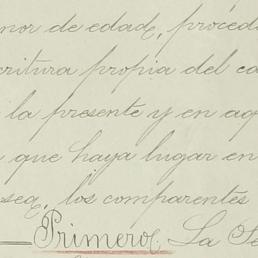 nor de edad, procéd
critura propia del ca
la presente y en aq
que haya lugar en
sea, los comparentes
Primero, La Se